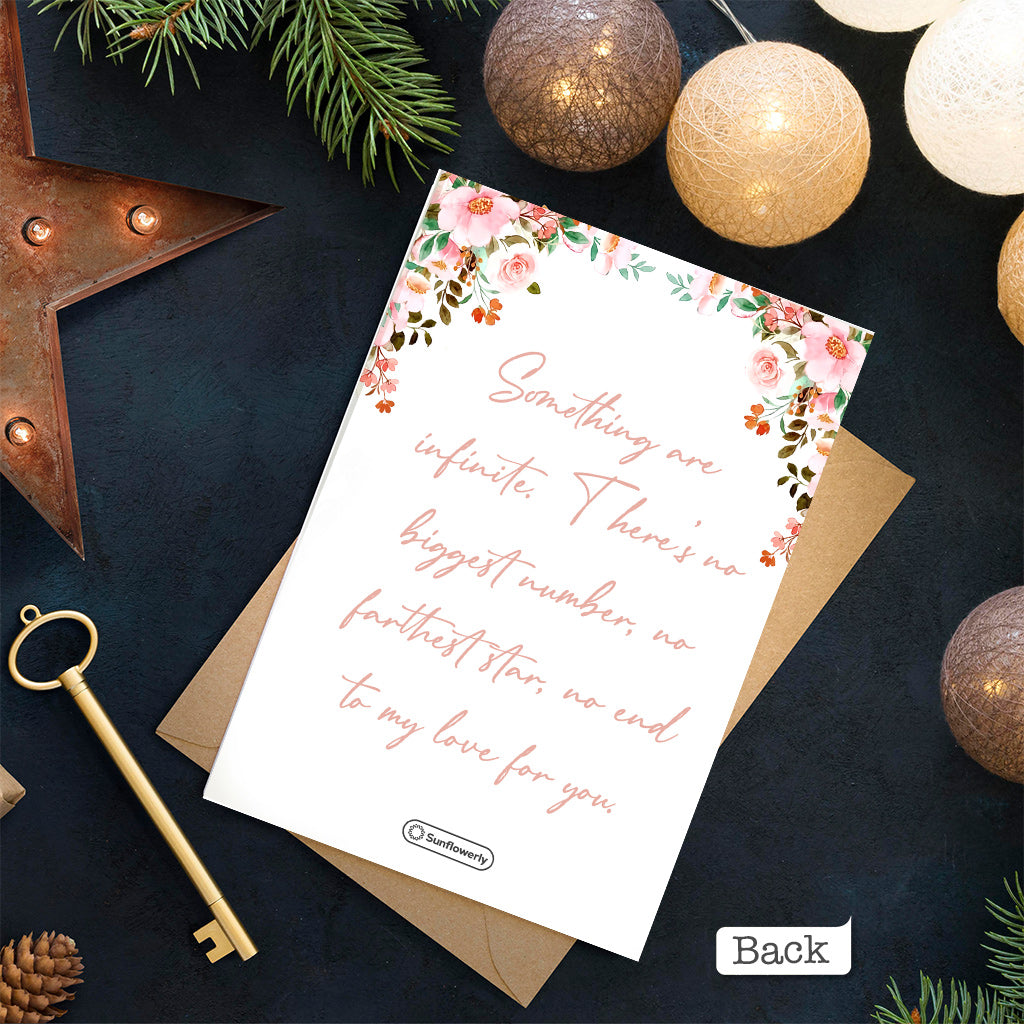 Something are
infinite. There's no
biggest number, no
farthest star, no end
to my love for you.
Sunflowerly
Back